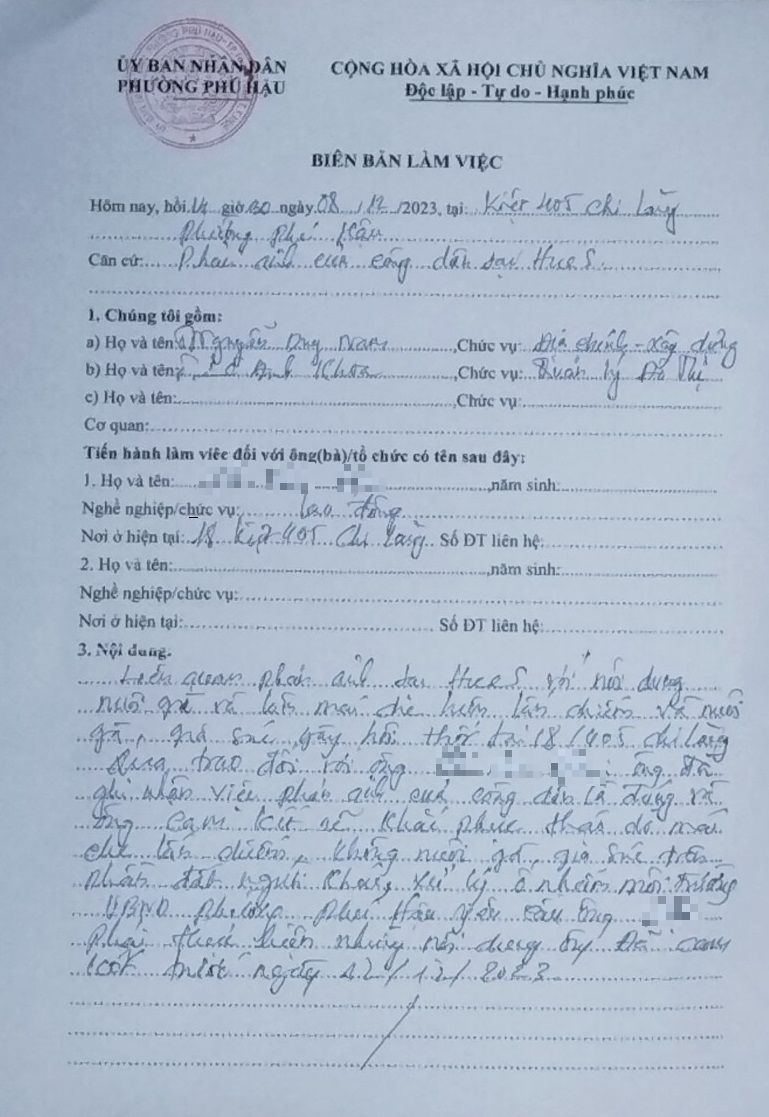 ỦY BAN NHÂN DÂN
PHƯỜNG PHÚ HẬU
CỘNG HÒA XÃ HỘI CHỦ NGHĨA VIỆT NAM
Độc lập - Tự do - Hạnh phúc
BIÊN BẢN LÀM VIỆC
Hôm nay, hồi 14 giờ 30 ngày 08/12/2023, tại: Kiệt 405 Chi Lăng
Phường Phú Hậu
Căn cứ: Phản ánh của công dân tại Hue S.
1. Chúng tôi gồm:
a) Họ và tên: Nguyễn Nam, Chức vụ: Địa chính - Xây dựng
b) Họ và tên: Anh Khoa, Chức vụ: Quản lý Đô Thị
c) Họ và tên: ,Chức vụ:
Cơ quan:
Tiến hành làm việc đối với ông(bà)/tổ chức có tên sau đây:
1. Họ và tên: ,năm sinh:
Nghề nghiệp/chức vụ: lao động
Nơi ở hiện tại: 18 Kiệt 405 Chi Lăng Số ĐT liên hệ:
2. Họ và tên: ,năm sinh:
Nghề nghiệp/chức vụ:
Nơi ở hiện tại: Số ĐT liên hệ:
3. Nội dung:
Liên quan phản ánh tại Hue S với nội dung
nuôi gà và làm mái che hiên lấn chiếm và nuôi
gà, gia súc gây hôi thối tại 18/405 Chi Lăng
Qua trao đổi với ông ông đã
ghi nhận việc phản ánh của công dân là đúng và
ông cam kết sẽ khắc phục tháo dỡ mái
che lấn chiếm, không nuôi gà, gia súc trên
phần đất người khác, xử lý ô nhiễm môi trường
UBND phường Phú Hậu yêu cầu ông
phải thực hiện những nội dung ông đã cam
kết trước ngày 12/12/2023